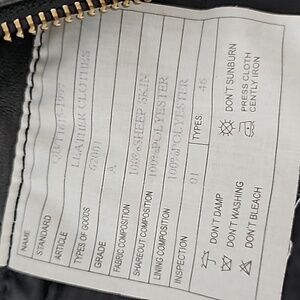 NAME
STANDARD QB/T1615-1997
ARTICLE LEATHER CLOTHES
TYPES OF GOODS 62001
GRADE A
FABRIC COMPOSITION 100%SHEEP SKIN
SHAREOUT COMPOSITION 100%POLYESTER
LINING COMPOSITION 100%POLYESTER
INSPECTION 01 TYPES: 46
DON'T DAMP DON'T SUNBURN
DON'T WASHING PRESS CLOTH
DON'T BLEACH CENTLY IRON